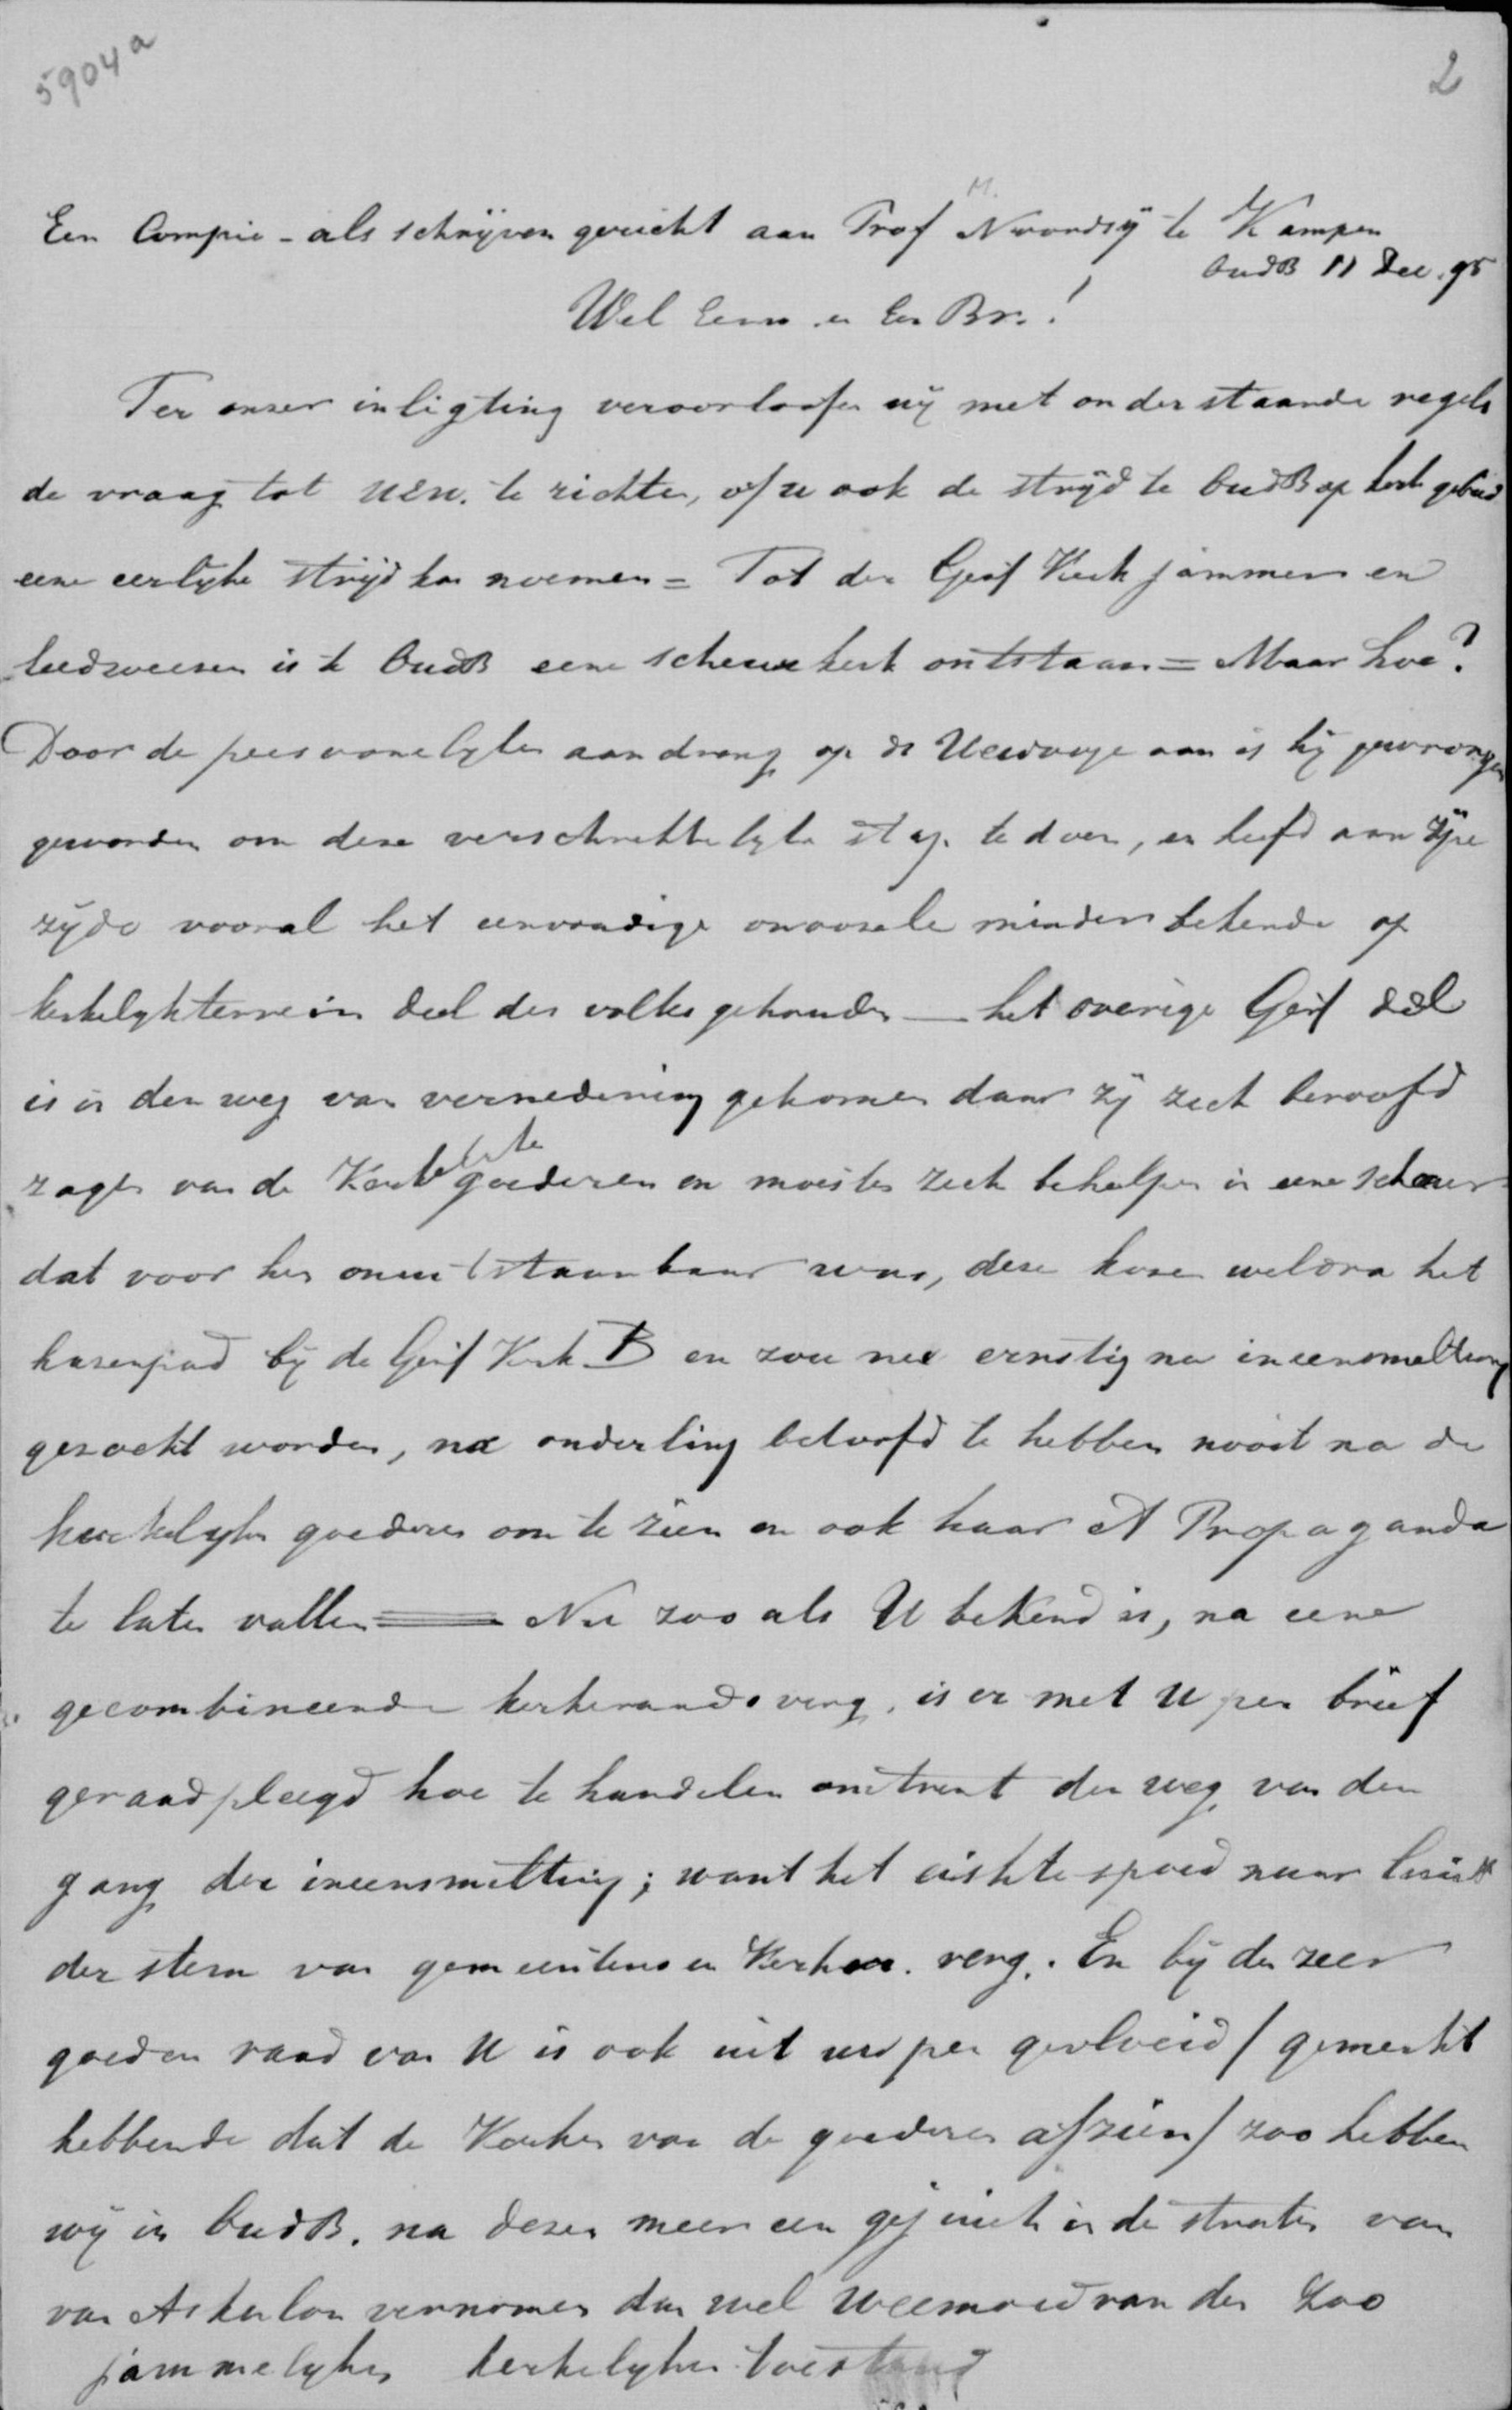 5904a
2
Een Compie - als schrijven gericht aan Prof M. Noordzij te Kampen
OudB 11 Dec. 95
Wel Eerw. en Gel Br.!
Ter onzer inligting veroorloofen wij met onderstaande regels
de vraag tot UEw. te richten, of u ook de strijd te OudB op kerk gebied
eene eerlijke strijd kan noemen = Tot der Geref Kerk jammer en
leedweesen is te OudB eene scheur kerk ontstaan = Maar hoe?
Door de persoonelyke aandrang op ds aan is hij gewrongen
geworden om deze verschrikkelyke stap te doen, en heefd aan zijne
zijde vooral het eenvoudige onnozele minder bekende op
kerkelyk terrein deel des volks gehouden — het overige Geref deel
is in den weg van vernedering gekomen daar zij zich beroofd
zagen van de Kerkelyke goederen en moesten zich behelpen in eene schuur
dat voor hen onuitstaanbaar was, deze kozen weldra het
hasenpad bij de Geref Kerk B en zou nu ernstig na ineensmelting
gezocht worden, na onderling beloofd te hebben nooit na de
kerkelyke goederen om te zien en ook haar A Propaganda
te laten vallen = Nu zoo als U bekend is, na eene
gecombineerde kerkeraads verg. is er met U per brief
geraadpleegd hoe te handelen omtrent den weg van den
gang der ineensmelting; want het eischte spoed naar
der stem van gemeentens en Kerker. verg. En bij den zeer
goeden raad van U is ook uit uw pen gevloeid / gemerkt
hebbende dat de Kerken van de goederen afzien / zoo hebben
wij in OudB. na dezen meer een juich in de straten van
van Askelon vernomen dan wel weemoed van den zoo
jammelyken kerkelyken toestand